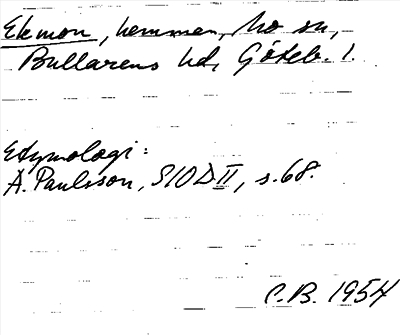 Ekmon, hemman, Mo sn,
Bullarens hd, Göteb. l.
Etymologi:
A. Paulsson, SIOD II, s. 68.
C.B. 1954